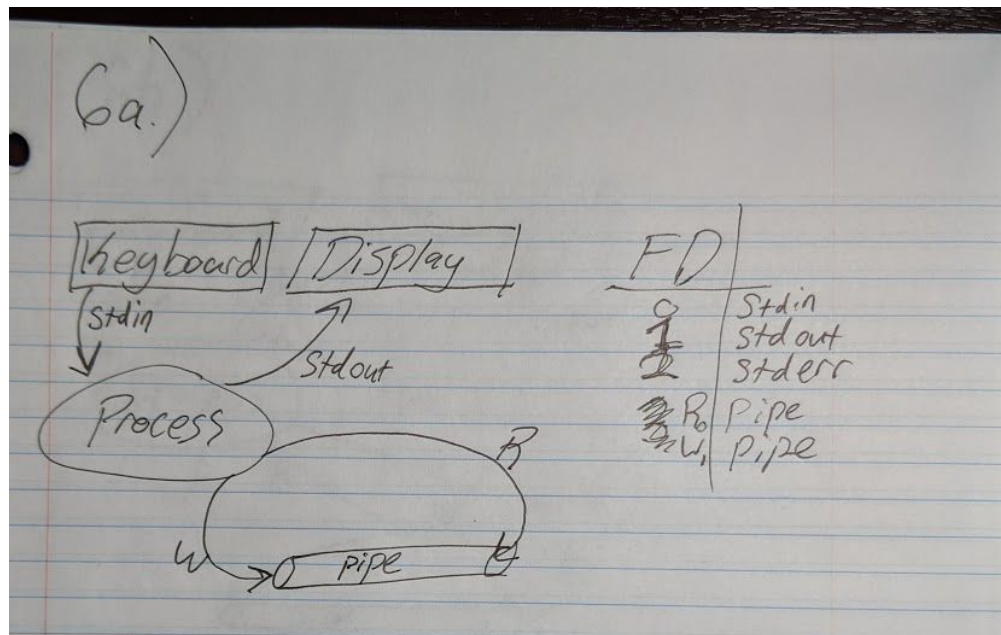 6a.)
Keyboard Display
stdin
Stdout
Process
R
W
pipe
FD
0 Stdin
1 stdout
2 stderr
R₀ pipe
W₁ pipe